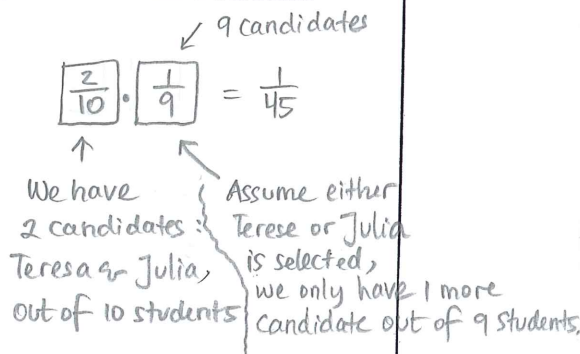 9 candidates
2/10 · 1/9 = 1/45
We have
2 candidates :
Teresa & Julia,
out of 10 students
Assume either
Terese or Julia
is selected,
we only have 1 more
candidate out of 9 students.